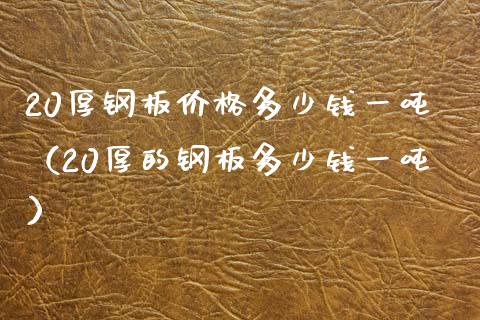 20厚钢板价格多少钱一吨
（20厚的钢板多少钱一吨
）